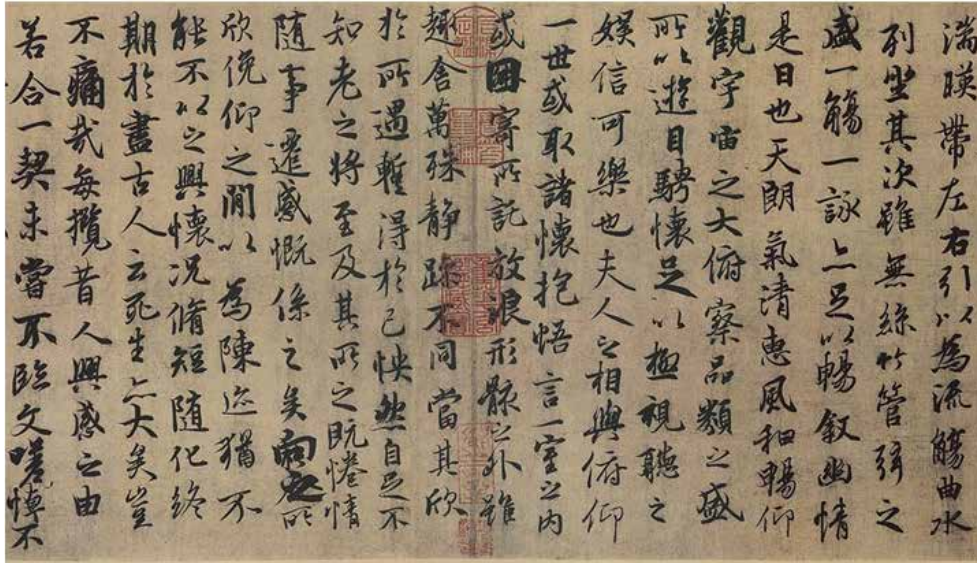 湍暎帶左右引以為流觴曲水
列坐其次雖無絲竹管弦之
盛一觴一詠亦足以暢叙幽情
是日也天朗氣清惠風和暢仰
觀宇宙之大俯察品類之盛
所以遊目騁懷足以極視聽之
娛信可樂也夫人之相與俯仰
一世或取諸懷抱悟言一室之內
或因寄所託放浪形骸之外雖
趣舍萬殊靜躁不同當其欣
於所遇暫得於己怏然自足不
知老之將至及其所之既惓情
隨事遷感慨係之矣向之所
欣俛仰之閒以為陳迹猶不
能不以之興懷況脩短隨化終
期於盡古人云死生亦大矣豈
不痛哉每攬昔人興感之由
若合一契未嘗不臨文嗟悼不